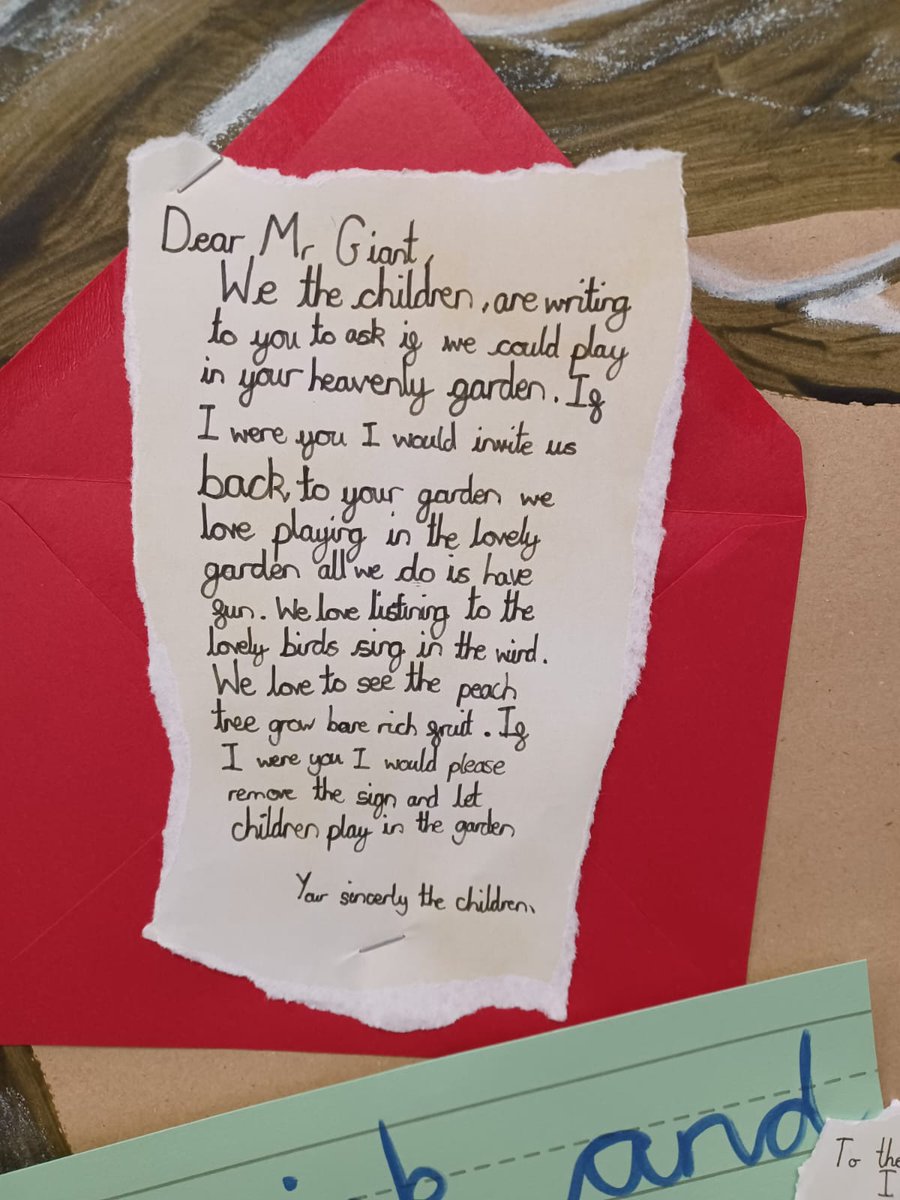 Dear Mr Giant,
We the children, are writing
to you to ask if we could play
in your heavenly garden. If
I were you I would invite us
back, to your garden we
love playing in the lovely
garden all we do is have
fun. We love listining to the
lovely birds sing in the wind.
We love to see the peach
tree grow bare rich fruit. If
I were you I would please
remove the sign and let
children play in the garden
Your sincerly the children.
and
To the
I